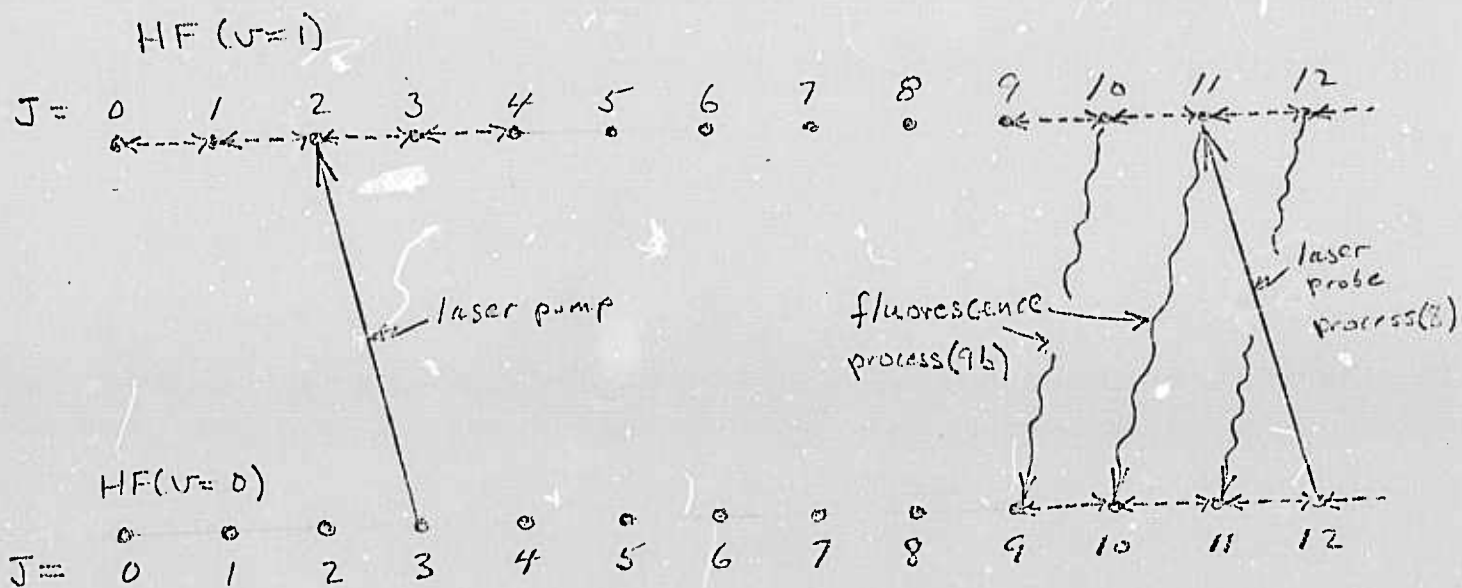 HF (v=1)
J= 0 1 2 3 4 5 6 7 8 9 10 11 12
laser pump
fluorescence
process(9b)
laser
probe
process(8)
HF(v=0)
J= 0 1 2 3 4 5 6 7 8 9 10 11 12